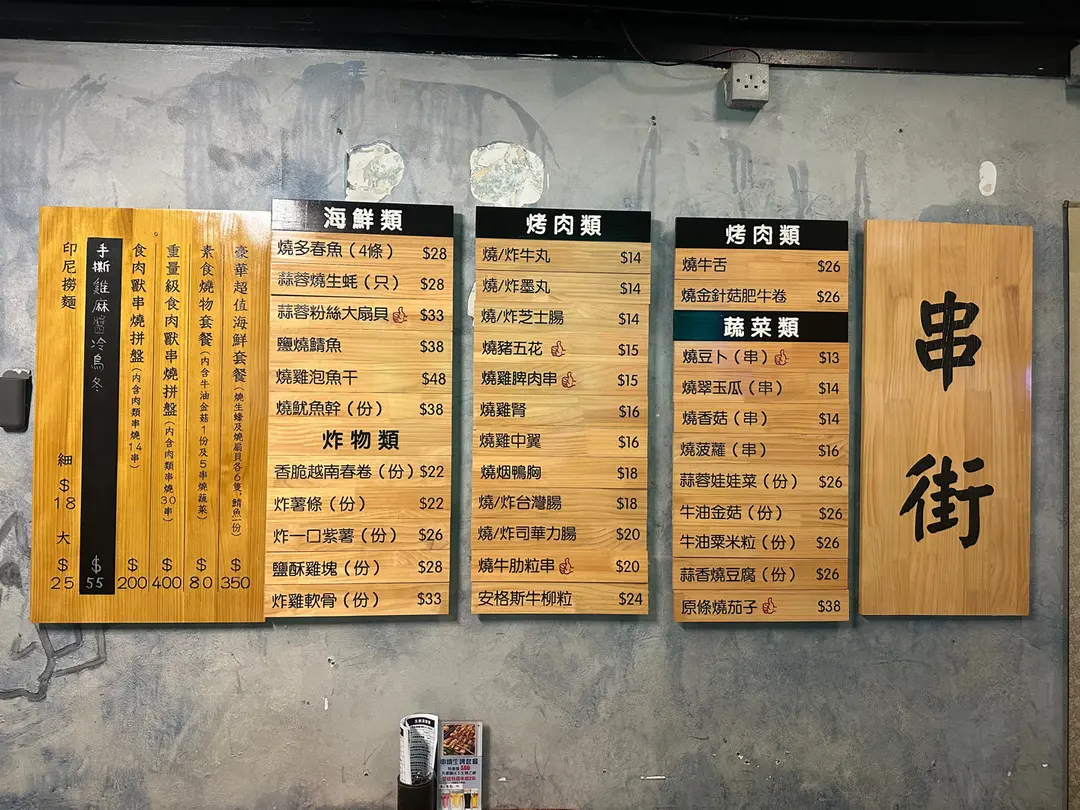 印尼撈麵 細 $18 大 $25
手撕雞麻醬冷烏冬 $55
食肉獸串燒拼盤(內含肉類串燒14串) $200
重量級食肉獸串燒拼盤(內含肉類串燒30串) $400
素食燒物套餐(內含牛油金菇1份及5串燒蔬菜) $80
豪華超值海鮮套餐(燒生蠔及燒扇貝各6隻,鯖魚一份) $350
海鮮類
燒多春魚(4條) $28
蒜蓉燒生蚝(只) $28
蒜蓉粉絲大扇貝 $33
鹽燒鯖魚 $38
燒雞泡魚干 $48
燒魷魚幹(份) $38
炸物類
香脆越南春卷(份) $22
炸薯條(份) $22
炸一口紫薯(份) $26
鹽酥雞塊(份) $28
炸雞軟骨(份) $33
烤肉類
燒/炸牛丸 $14
燒/炸墨丸 $14
燒/炸芝士腸 $14
燒豬五花 $15
燒雞脾肉串 $15
燒雞腎 $16
燒雞中翼 $16
燒烟鴨胸 $18
燒/炸台灣腸 $18
燒/炸司華力腸 $20
燒牛肋粒串 $20
安格斯牛柳粒 $24
烤肉類
燒牛舌 $26
燒金針菇肥牛卷 $26
蔬菜類
燒豆卜(串) $13
燒翠玉瓜(串) $14
燒香菇(串) $14
燒菠蘿(串) $16
蒜蓉娃娃菜(份) $26
牛油金菇(份) $26
牛油粟米粒(份) $26
蒜香燒豆腐(份) $26
原條燒茄子 $38
串街